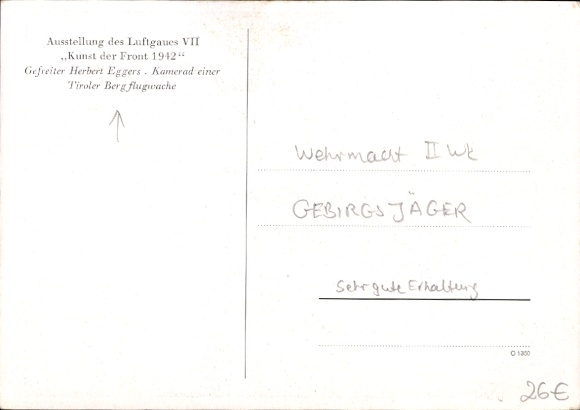 Ausstellung des Luftgaues VII
„Kunst der Front 1942“
Gefreiter Herbert Eggers . Kamerad einer
Tiroler Bergflugwache
Wehrmacht II Wk
GEBIRGSJÄGER
Sehr gute Erhaltung
26€